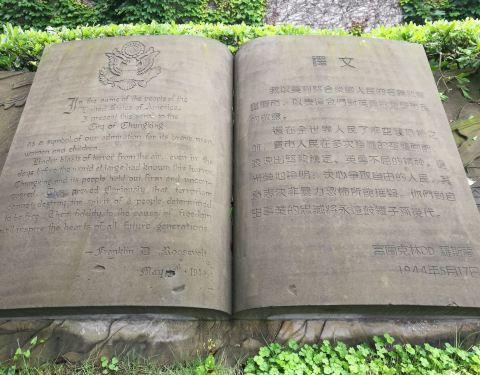 In the name of the people of the
United States of America,
I present this scroll to the
City of Chungking
as a symbol of our admiration for its brave men,
women and children.
Under blasts of terror from the air, even in the
days before the world at large had known this horror,
Chungking and its people held out firm and uncon-
quered. They proved gloriously that terrorism
cannot destroy the spirit of a people determined
to be free. Their fidelity to the cause of freedom
will inspire the hearts of all future generations.
— Franklin D. Roosevelt
May 17 1944
釋文
我以美利堅合衆國人民的名義
重慶市，以表達我們對英勇的重慶市民
的敬佩。
遠在全世界人民了解空襲恐怖之
前，貴市人民在多次 的空襲
表現出堅毅鎮定、英勇不屈的精神，這
證明，決心爭取自由的人民，其
意志決非暴力恐怖所能摧毀。你們對自
由事業的忠誠將永遠鼓舞子孫後代。
富蘭克林·D·羅斯福
1944年5月17日